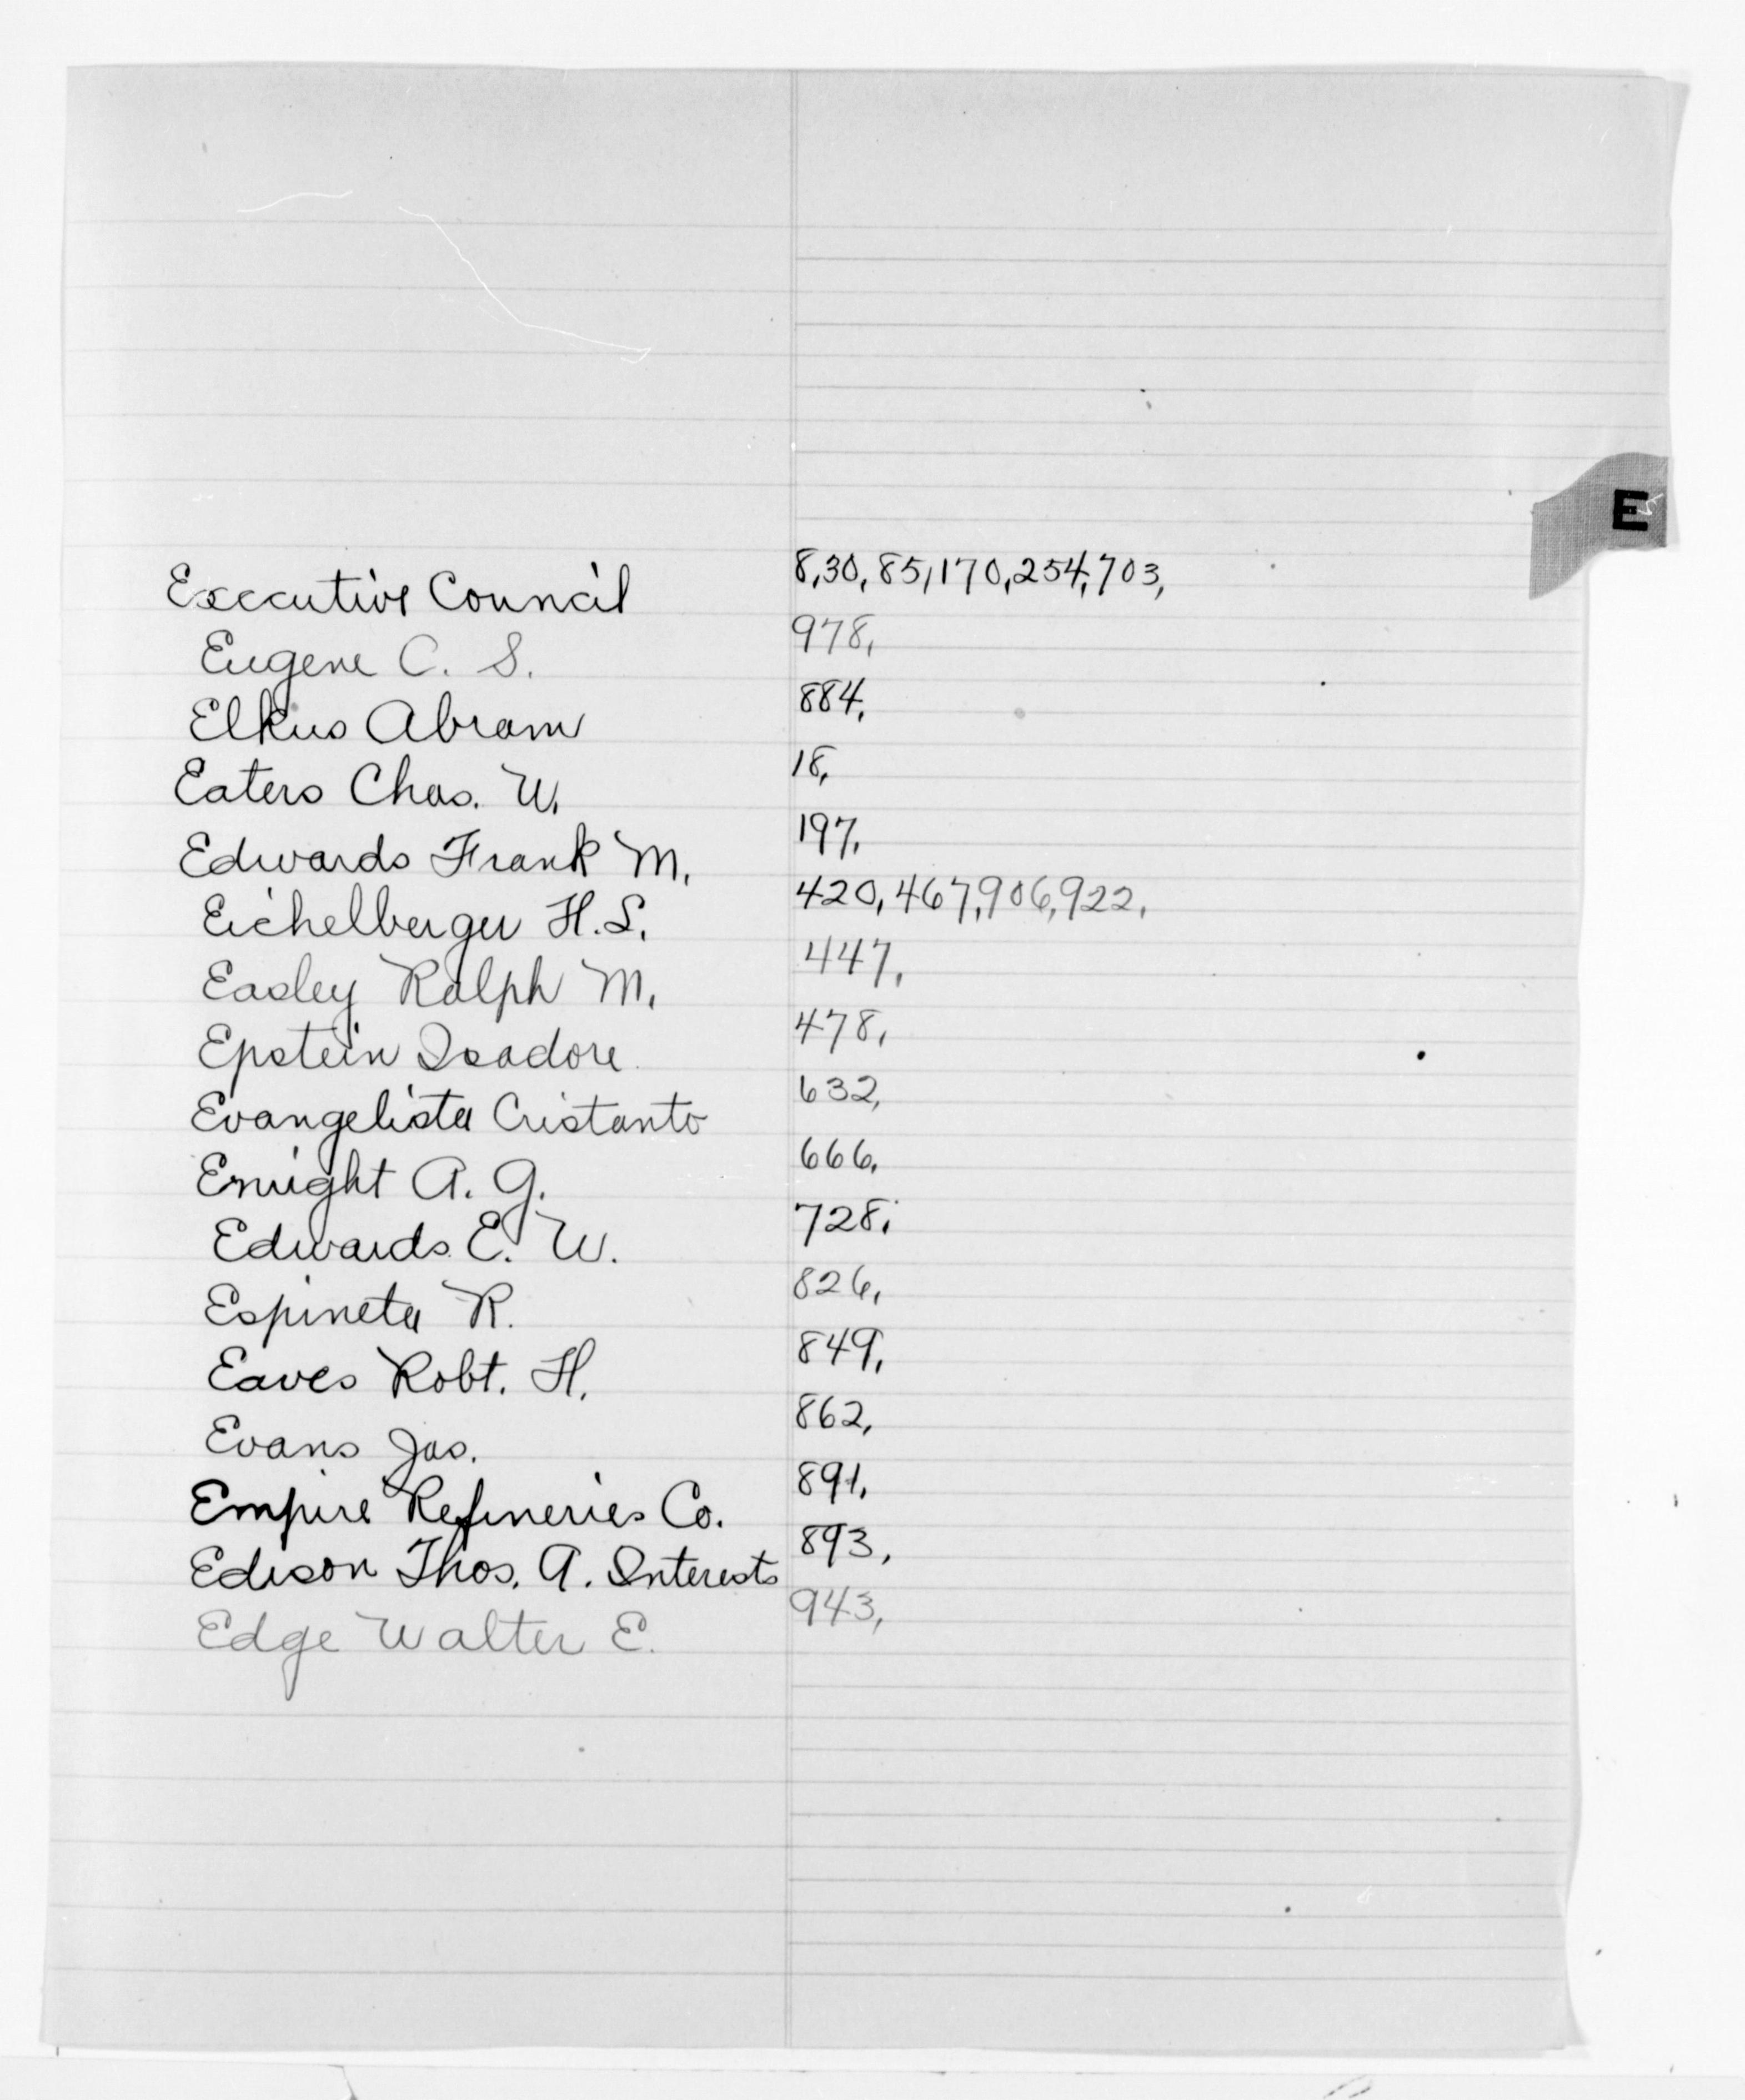 E
Executive Council 8,30,85,170,254,703,
Eugene C. S. 978,
Elkus Abram 884,
Eaters Chas. W. 18,
Edwards Frank M. 197,
Eichelberger H.S. 420,467,906,922,
Easley Ralph M. 447,
Epstein Isadore 478,
Evangelista Cristanto 632,
Enright A. G. 666,
Edwards E. W. 728,
Espineta R. 826,
Eaves Robt. H. 849,
Evans Jas. 862,
Empire Refineries Co. 891,
Edison Thos. A. Interests 893,
Edge Walter E. 943,